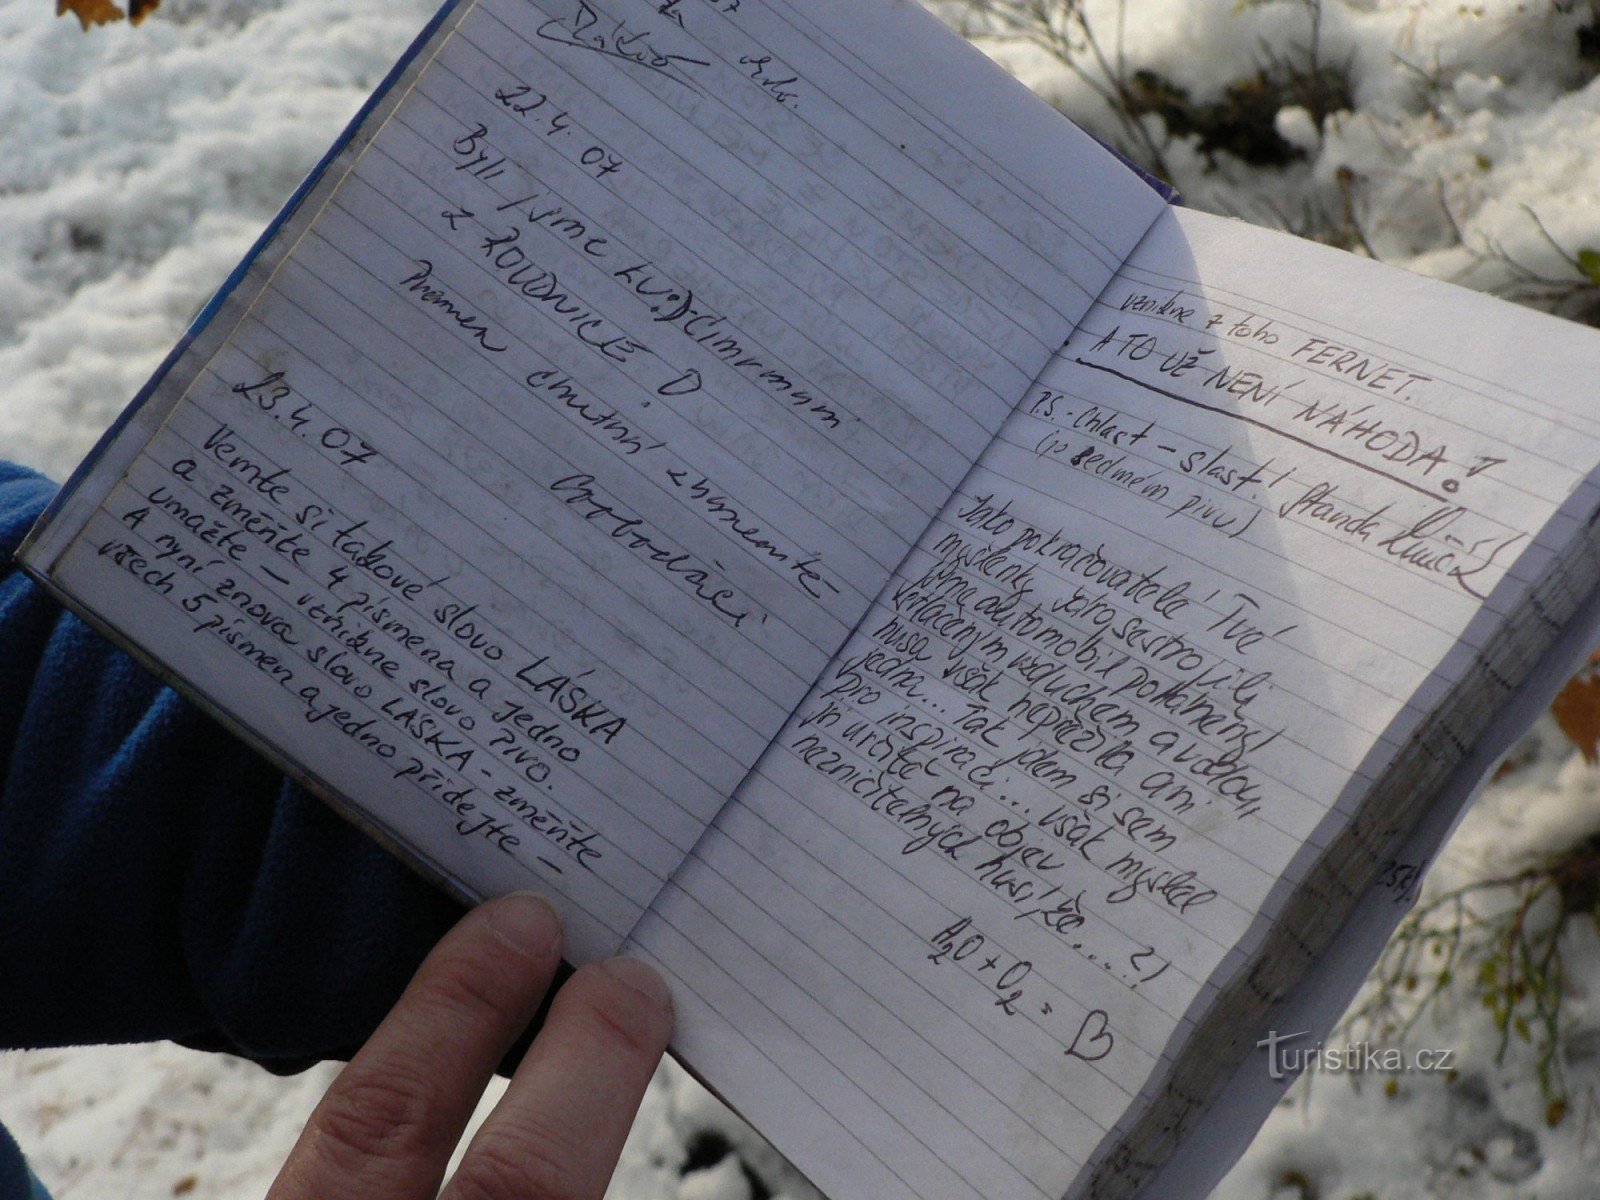 22.4.07
Byli jsme tu :D-Cimrmani
z ROUDNICE :D
Pramen chutná znamenitě
23.4.07
Vemte si takové slovo LÁSKA
a změňte 4 písmena a jedno
umažte – vznikne slovo PIVO.
A nyní znova slovo LÁSKA - změňte
všech 5 písmen a jedno přidejte –
vznikne z toho FERNET.
A TO UŽ NENÍ NÁHODA!
P.S. - Chlast – slast!
(po sedmém pivu)
Jako pokračovatelé Tvé
myšlenky, Járo sestrojili
jsme automobil poháněný
stlačeným vzduchem a vodou,
husa však nepřežila ani
jedna... Tak jdem si sem
pro inspiraci... však myslel
jsi určitě na objev
nezničitelných husí, že...?!
H2O + O2 = ♡
Turistika.cz